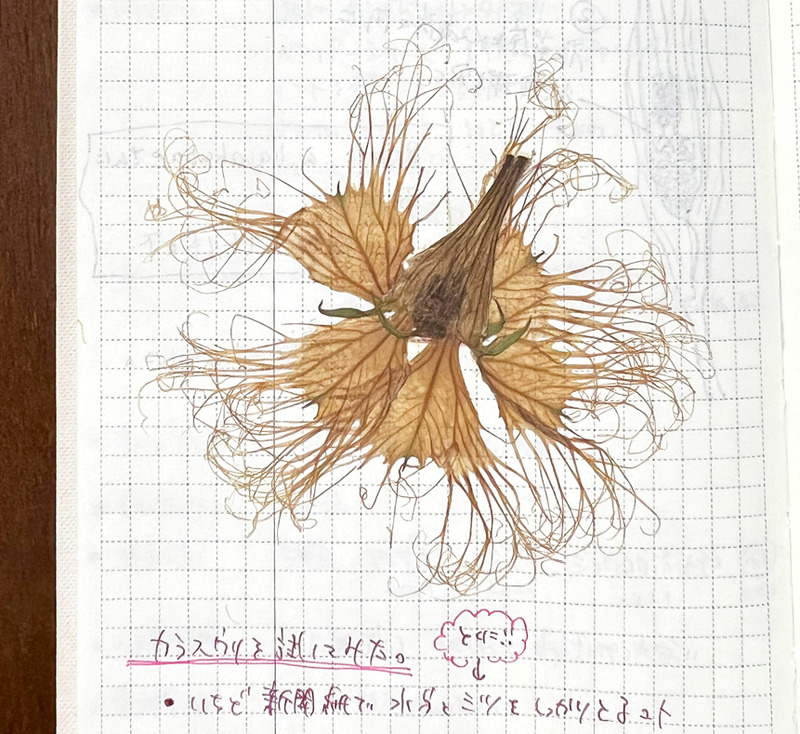 カラスウリを試してみた。
・いちど新聞紙で水分とミツをしっかりとるコト